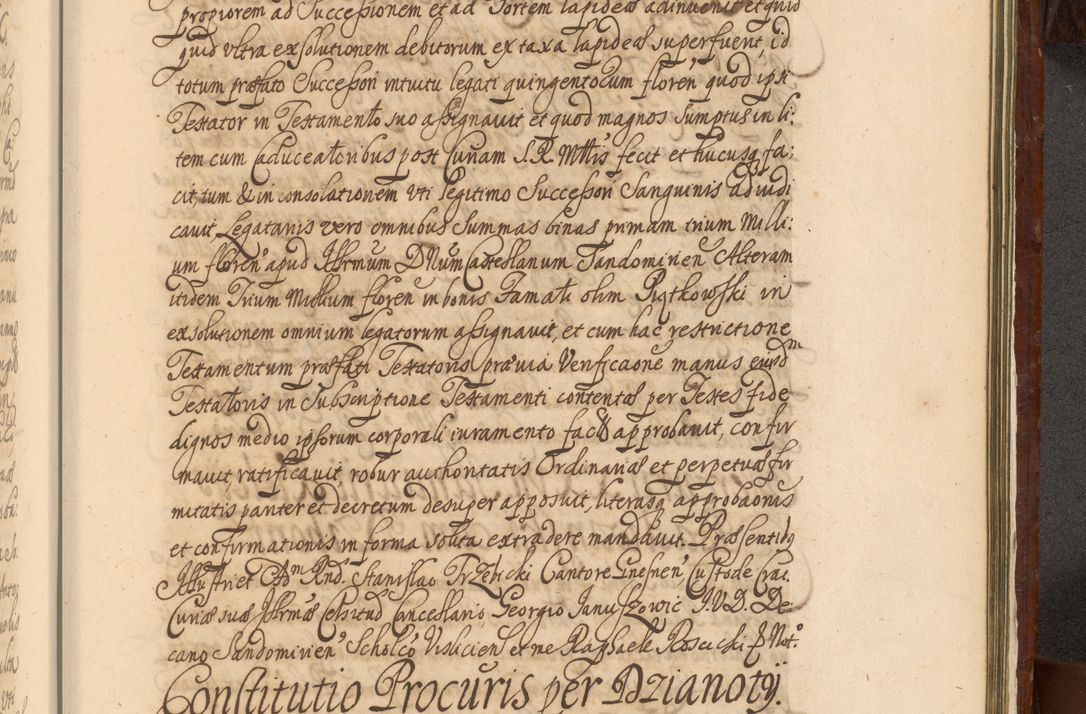 propiorem ad Successionem et ad Sortem lapideæ adinuenit et quid
quid vltra exsolutionem debitorum ex taxa lapideæ superfuerit, id
totum præfato Successori intuitu legati quingentorum floren̄ quod ipsi
Testator in Testamento suo assignauit et quod magnos Sumptus in li:
tem cum Caduceatoribus post Curiam S. R. Mttis fecit et hucusq fa:
cit, tum & in consolationem vti legitimo Successori Sanguinis adiudi
cauit, Legatariis vero omnibus Summas binas primam trium Milli:
um floren̄ apud Illrmum D Num Castellanum Sandomirien̄ Alteram
itidem Trium Millium floren̄ in bonis Famati olim Piątkowski in
exsolutionem omnium legatorum assignauit, et cum hac restrictione
Testamentum præfati Testatoris præuia Verificaōne manus eiusdm
Testatoris in Subscriptione Testamenti contentæ per Testes fide
dignos medio ipsorum corporali iuramento facto approbauit, confir
mauit, ratificauit, robur authoritatis Ordinariæ et perpetuæ fir
mitatis pariter et decretum desuper apposuit, literasq approbaōnis
et confirmationis in forma solita extradere mandauit. Præsentibq
Illustri et Adm Rnd. Stanislao Trzebicki Cantore Gnesnen̄, Custode Crac.
Curiæ suæ Illrmæ Celsitud Cancellario, Georgio Januszowic J.V.D. De
cano Sandomirien̄ Scholco Visliciens et me Raphaele Roscicki & Not.o
Constitutio Procuris per Dzianoty.